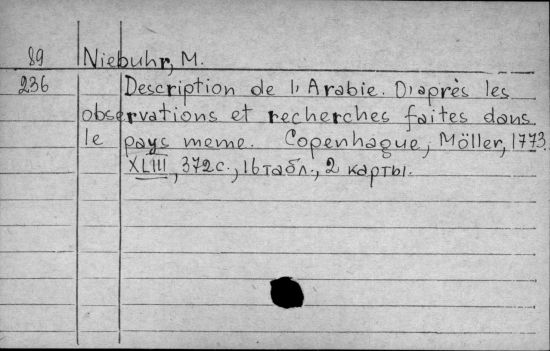 89 Niebuhr, M.
236 Description de l'Arabie. D'après les
observations et recherches faites dans
le pays meme. Copenhague, Möller, 1773.
XLIII, 372 с., 16 табл., 2 карты.